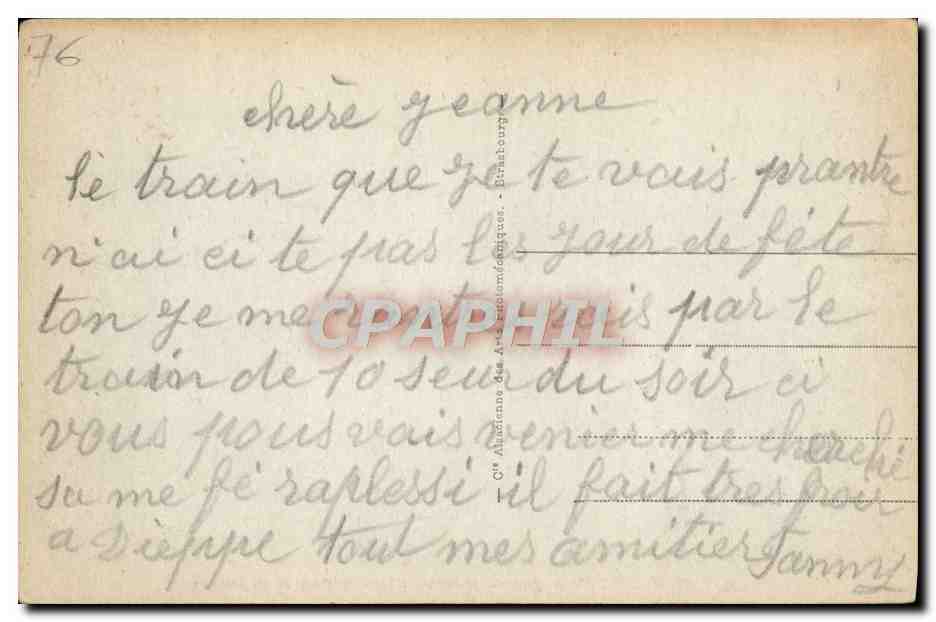 76
chère jeanne
le train que je te vais prantre
n'ai ci te pas les jour de fête
ton je me rontre vais par le
train de 10 seur du soir ci
vous pous vais venier me cherché
sa me fé raplessi il fait tres froir
a Dieppe tout mes amitier Fanny
— Cie Alsacienne des Arts Photomécaniques. - Strasbourg
CPAPHIL